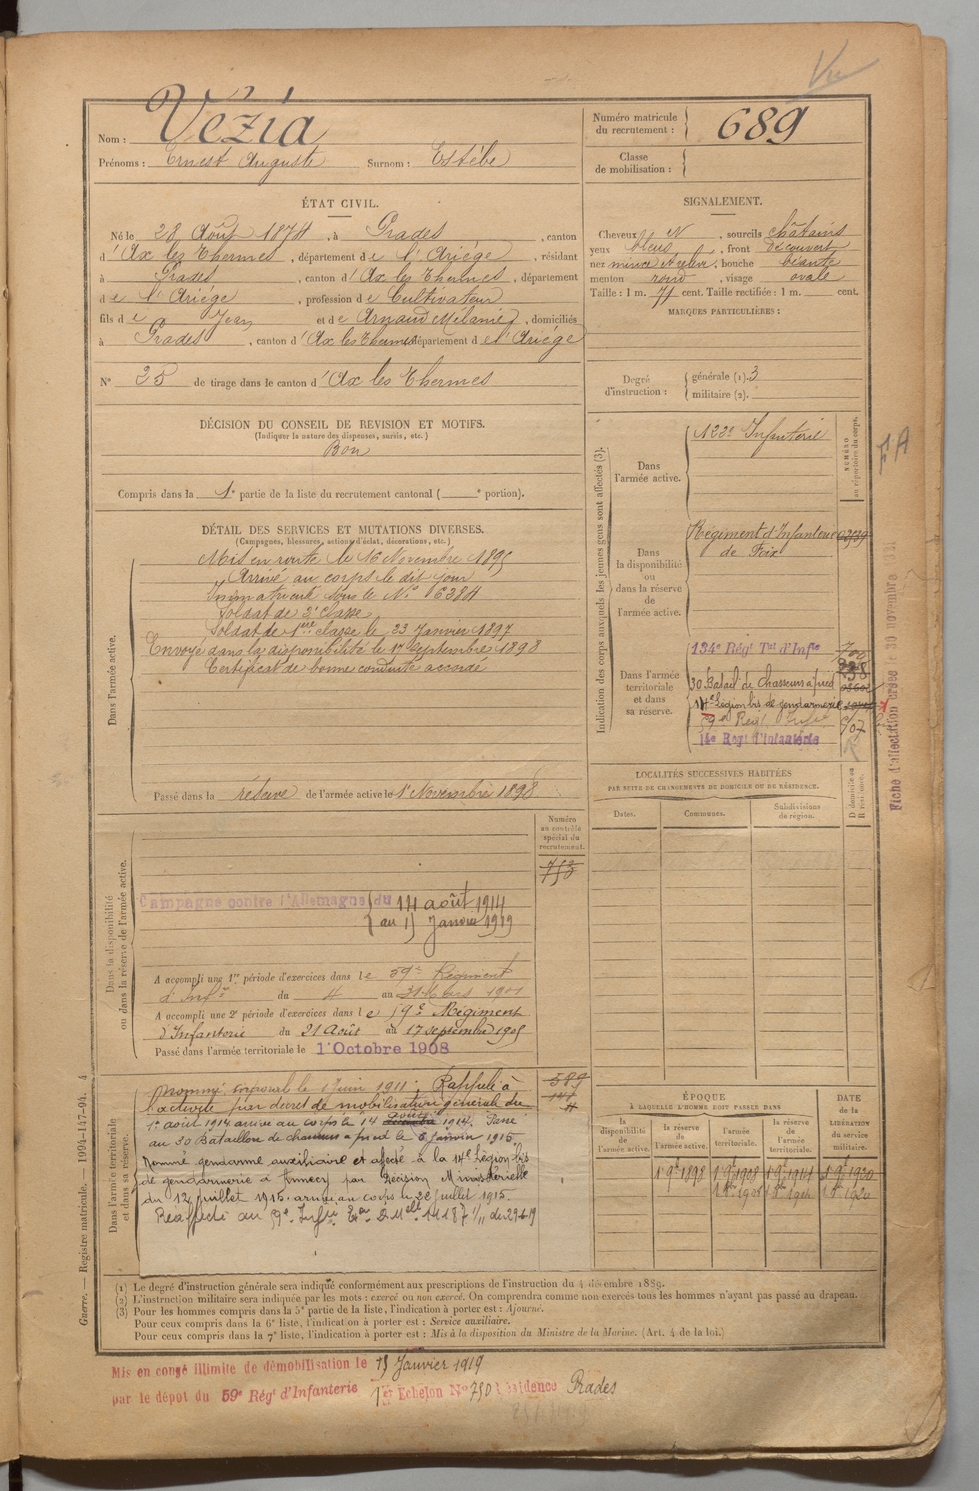 Vu
Nom : Vézia
Prénoms : Ernest Auguste Surnom : Estèbe
Numéro matricule du recrutement : 689
Classe de mobilisation :
ÉTAT CIVIL.
Né le 28 Août 1874, à Prades, canton
d'Ax les Thermes, département de l'Ariége, résidant
à Prades, canton d'Ax les Thermes, département
de l'Ariége, profession de Cultivateur
fils de Jean et de Arnaud Mélanie, domiciliés
à Prades, canton d'Ax les Thermes département de l'Ariége
N° 25 de tirage dans le canton d'Ax les Thermes
SIGNALEMENT.
Cheveux N, sourcils châtains
yeux bleus, front découvert
nez mince, bouche béante
menton rond, visage ovale
Taille : 1 m. 71 cent. Taille rectifiée : 1 m. cent.
MARQUES PARTICULIÈRES :
Degré d'instruction : générale (1). 3
militaire (2).
DÉCISION DU CONSEIL DE REVISION ET MOTIFS.
(Indiquer la nature des dispenses, sursis, etc.)
Bon
Compris dans la 1e partie de la liste du recrutement cantonal ( e portion).
DÉTAIL DES SERVICES ET MUTATIONS DIVERSES.
(Campagnes, blessures, actions d'éclat, décorations, etc.)
Dans l'armée active.
Mis en route le 16 Novembre 1895
Arrivé au corps le dit jour
Immatriculé sous le N° 6384
Soldat de 2e classe
Soldat de 1ère classe le 23 Janvier 1897
Envoyé dans la disponibilité le 17 septembre 1898
Certificat de bonne conduite accordé
Passé dans la réserve de l'armée active le 1r Novembre 1898
Indication des corps auxquels les jeunes gens sont affectés (3).
NUMÉRO au répertoire du corps.
Dans l'armée active.
122e Infanterie
Dans la disponibilité ou dans la réserve de l'armée active.
Régiment d'Infanterie
de Foix
Dans l'armée territoriale et dans sa réserve.
134e Régt Tal d'Infie
30 Batail de Chasseurs à pied
14e Légion bis de gendarmerie
59e Régt Infie
14e Regt d'Infanterie
F A
Fiche d'affectation créée le 30 novembre 1931
LOCALITÉS SUCCESSIVES HABITÉES
PAR SUITE DE CHANGEMENTS DE DOMICILE OU DE RÉSIDENCE.
Dates. Communes. Subdivisions de région. D domicile ou R résidence.
Numéro au contrôle spécial du recrutement.
753
Dans la disponibilité ou dans la réserve de l'armée active.
Campagne contre l'Allemagne du 14 août 1914
au 15 Janvier 1919
A accompli une 1re période d'exercices dans le 59e Régiment
d'Infie du 4 au 31 Mars 1901
A accompli une 2e période d'exercices dans le 59e Régiment
d'Infanterie du 21 Août au 17 septembre 1905
Passé dans l'armée territoriale le 1r Octobre 1908
Dans l'armée territoriale et dans sa réserve.
589
Nommé caporal le 1 Juin 1911. Rappelé à
l'activité par décret de mobilisation générale du
1e août 1914 arrivé au corps le 14 août 1914. Passé
au 30 Bataillon de chasseurs à pied le 8 janvier 1915.
Nommé gendarme auxiliaire et affecté à la 14e Légion bis
de gendarmerie à Annecy par Décision Ministérielle
du 12 juillet 1915. arrivé au corps le 22 juillet 1915.
Réaffecté au 59e Infie
ÉPOQUE
À LAQUELLE L'HOMME DOIT PASSER DANS
la disponibilité de l'armée active. la réserve de l'armée active. l'armée territoriale. la réserve de l'armée territoriale.
DATE de la LIBÉRATION du service militaire.
1r 9bre 1898 1r 9bre 1908 1r 9bre 1914 1r 9bre 1920
1r 8bre 1908 1r 8bre 1914 1r 8bre 1920
(1) Le degré d'instruction générale sera indiqué conformément aux prescriptions de l'instruction du 4 décembre 1889.
(2) L'instruction militaire sera indiquée par les mots : exercé ou non exercé. On comprendra comme non exercés tous les hommes n'ayant pas passé au drapeau.
(3) Pour les hommes compris dans la 5e partie de la liste, l'indication à porter est : Ajourné.
Pour ceux compris dans la 6e liste, l'indication à porter est : Service auxiliaire.
Pour ceux compris dans la 7e liste, l'indication à porter est : Mis à la disposition du Ministre de la Marine. (Art. 4 de la loi.)
Guerre. — Registre matricule. — 1994-147-94. 4
Mis en congé illimité de démobilisation le 15 Janvier 1919
par le dépôt du 59e Régt d'Infanterie 1er Echelon N° 750 Résidence Prades